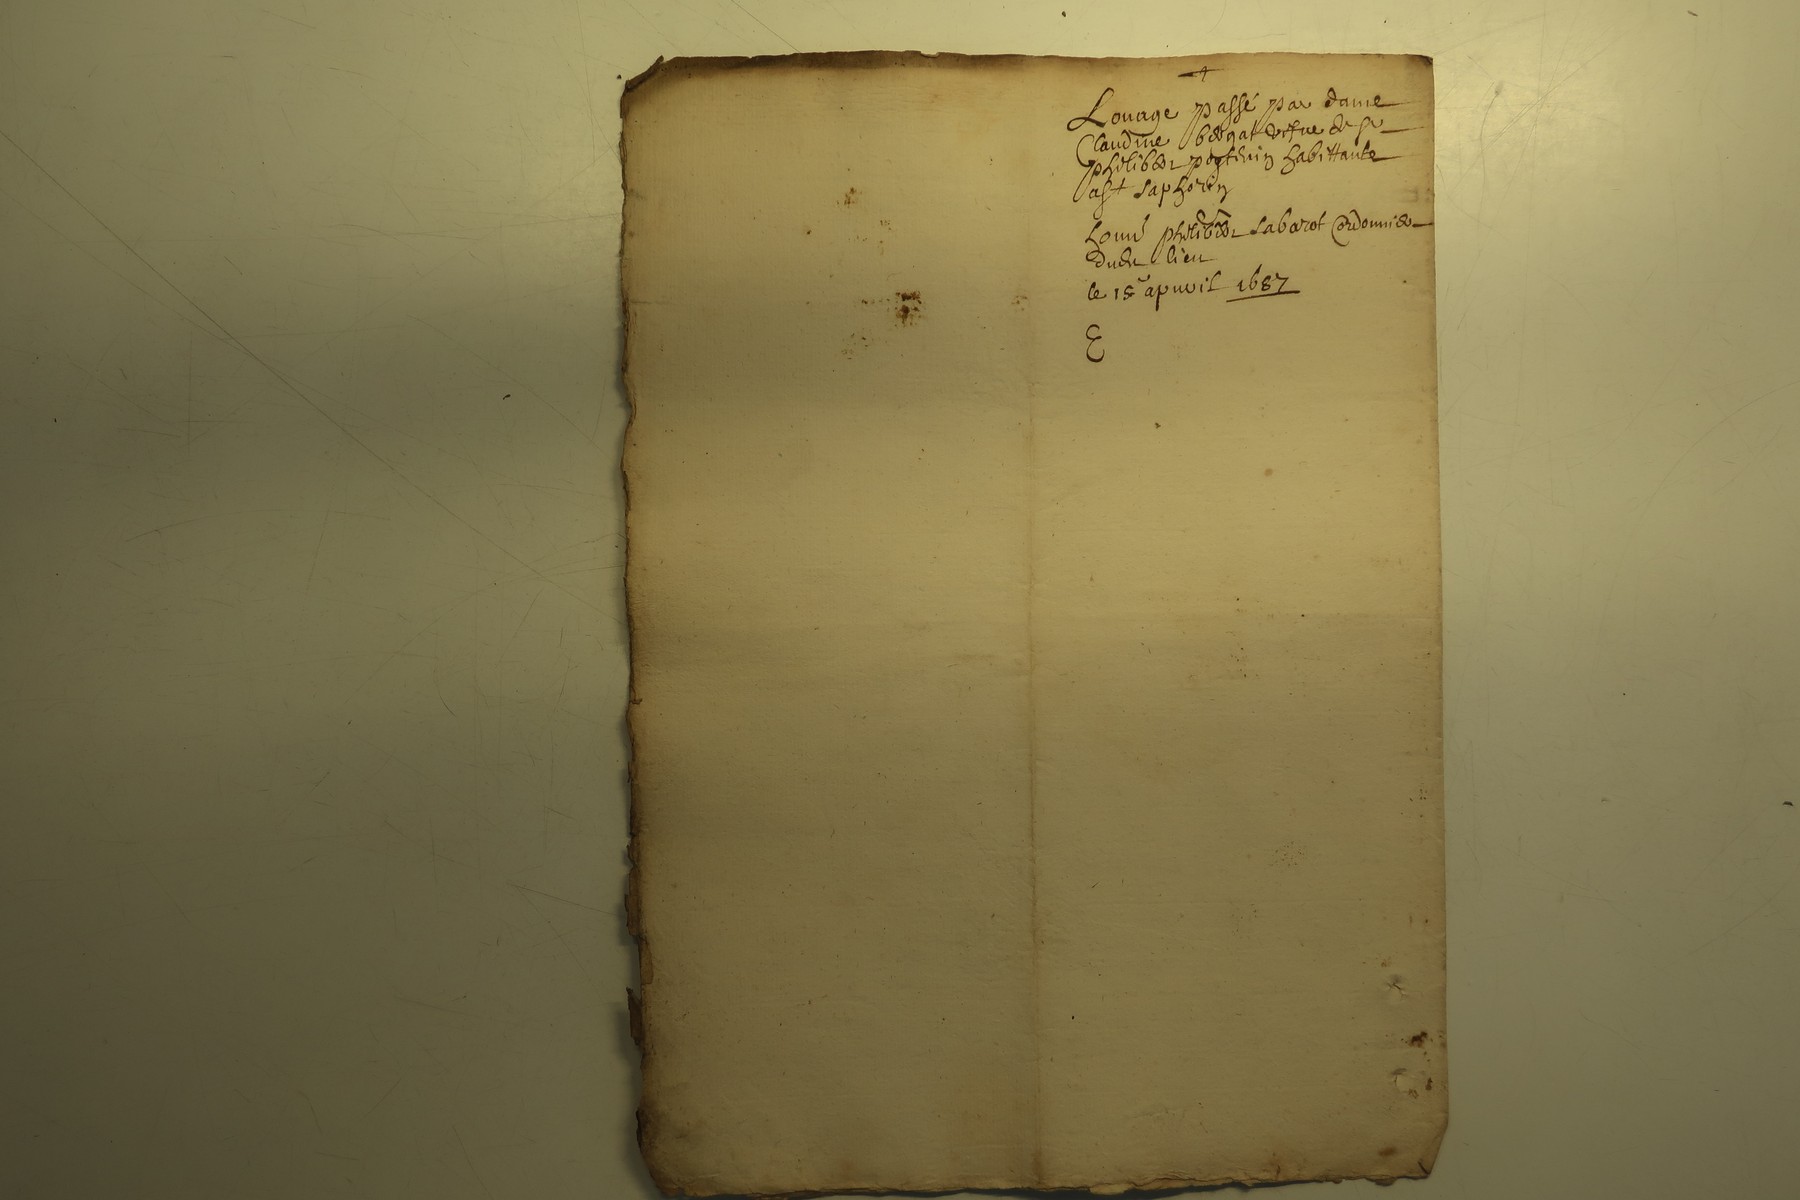 Louage passé par dame
Claudine bergat vefve de sr
philiber potthin habittante
a st saphorin
honn philiber sabarot Cordonnier
dudt lieu
le 15e apuril 1687
E